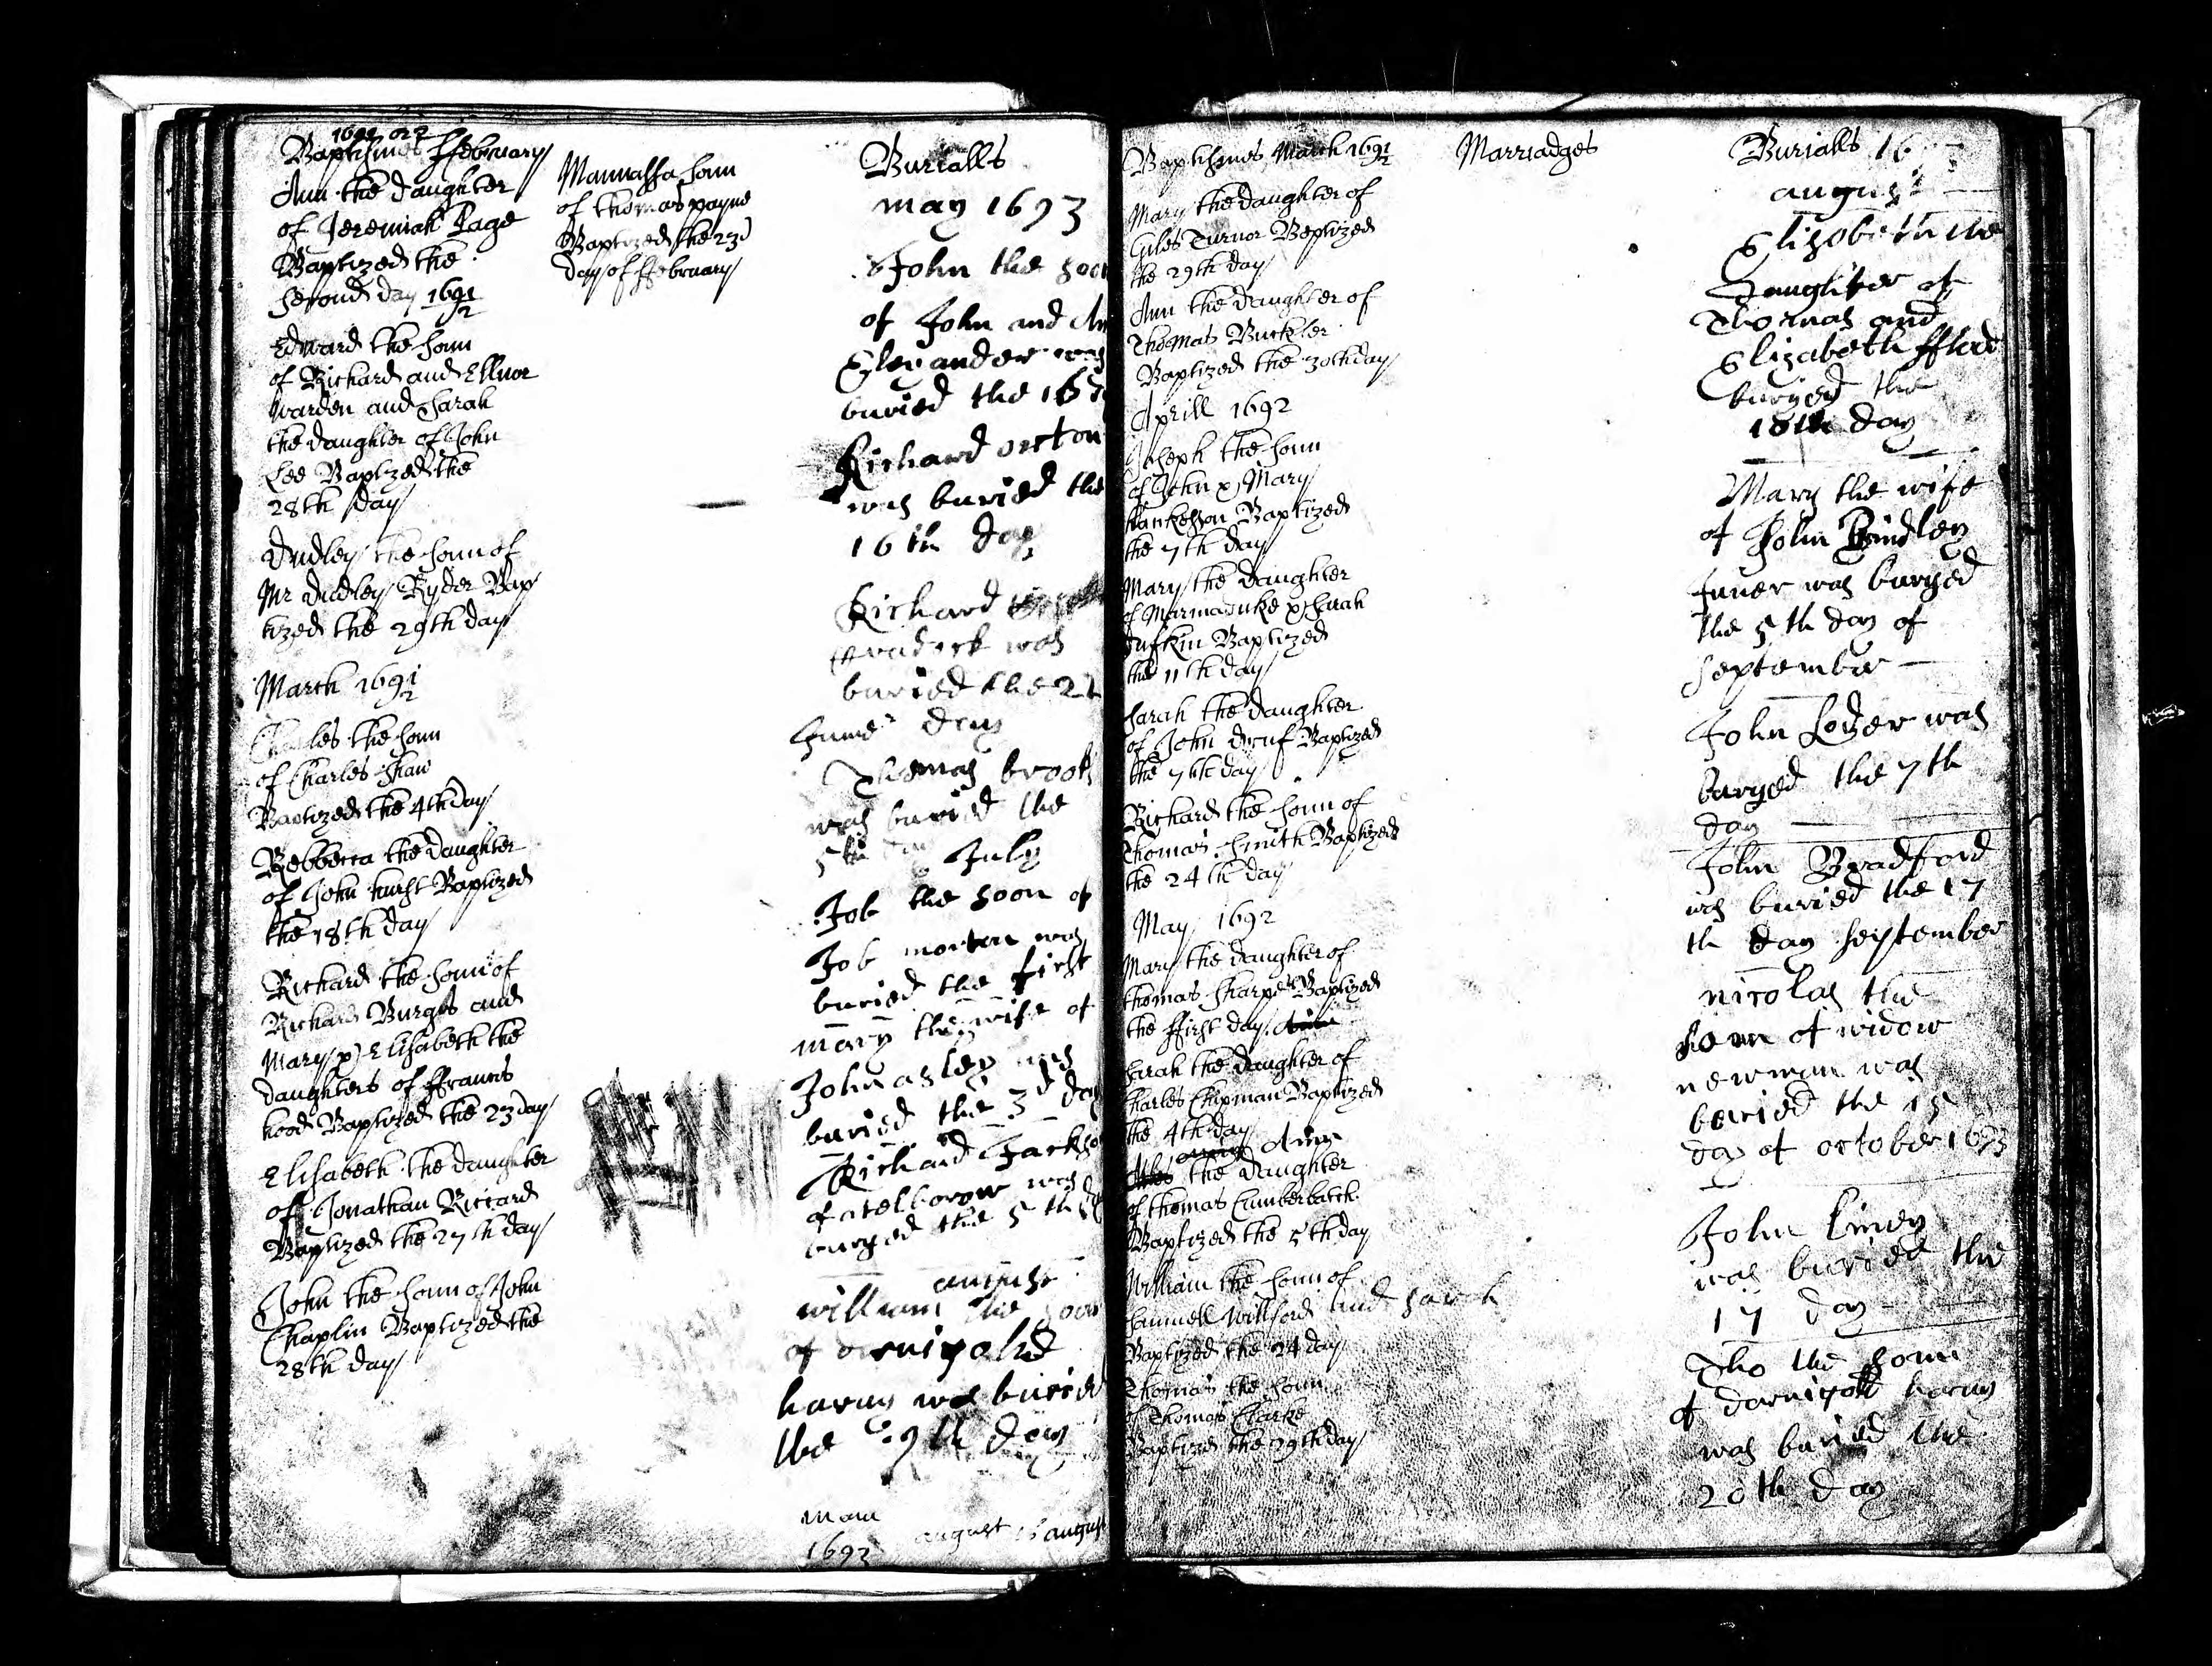 1691 or 2
Baptismes ffebruary
Ann the daughter
of Jeremiah Page
Baptized the
second day 1691/2
Edward the sonn
of Richard and Ellnor
Warden and Sarah
the daughter of John
Lee Baptized the
28th day
Dudley the sonn of
Mr Dudley Ryder Bap
tized the 29th day
March 1691/2
Charles the sonn
of Charles Shaw
Baptized the 4th day
Rebbecca the daughter
of John hurst Baptized
the 18th day
Richard the sonn of
Richard Burges and
Mary & Elisabeth the
daughters of ffrancis
hood Baptized the 23 day
Elisabeth the daughter
of Jonathan Riccard
Baptized the 27th day
John the sonn of John
Chaplin Baptized the
28th day
Mannassa sonn
of thomas payne
Baptized the 23d
day of ffebruary
Burialls
may 1693
John the soon
of John and An
was
buried the
Richard orton
was buried the
16th day
Richard
was
buried the 21
day
Thomas brooks
was buried the
5th
July
Job the soon of
Job morton was
buried the first
mary the wife of
John asley was
buried the 3d day
Richard Jackso
of was
buryed the 5th
august
william the soon
of
was buried
the 9th day
1693 august august
Baptismes March 1691/2
Mary the daughter of
Giles Turnor Baptized
the 29th day
Ann the daughter of
Thomas Buckler
Baptized the 30th day
Aprill 1692
Joseph the sonn
of John & Mary
Hankesson Baptized
the 7th day
Mary the daughter
of Marmaduke & Sarah
Jufkin Baptized
the 11th day
Sarah the daughter
of John Baptized
the 7th day
Richard the sonn of
Thomas Smith Baptized
the 24th day
May 1692
Mary the daughter of
thomas Sharpe Baptized
the ffirst day
Sarah the daughter of
Charles Chipman Baptized
the 4th day
Ann
the daughter
of thomas Cumberbatch
Baptized the 5th day
William the sonn of
Samuell Willford and sarah
Baptized the 24 day
Thomas the sonn
of Thomas Clarke
Baptized the 29th day
Marriadges
Burialls 16
august
Elizobeth the
Daughter of
Thomas and
Elizabeth
buryed the
18th day
Mary the wife
of John Bindley
was buryed
the 5th day of
September
John Lozer was
buryed the 7th
day
John Bradford
was buried the 17
th day september
nicolas the
sonn of widow
newman was
buried the 15
day of october 1693
John
was buried the
17 day
Tho the sonn
of
was buried the
20th day